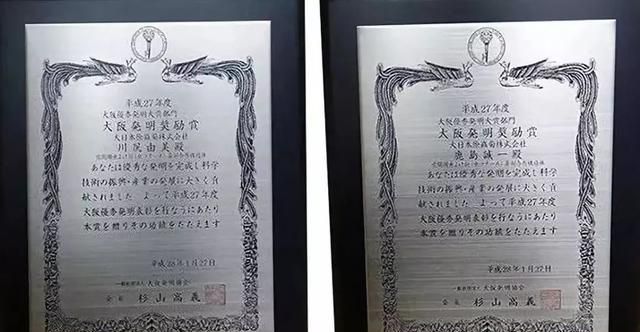 平成27年度
大阪優秀発明大賞部門
大阪発明奨励賞
大日本除蟲菊株式会社
川尻由美殿
あなたは優秀な発明を完成し科学
技術の振興・産業の発展に大きく貢
献されました よって平成27年度
大阪優秀発明表彰を行なうにあたり
本賞を贈りその功績をたたえます
平成28年1月27日
一般社団法人 大阪発明協会
会長 杉山高義
平成27年度
大阪優秀発明大賞部門
大阪発明奨励賞
大日本除蟲菊株式会社
鹿島誠一殿
あなたは優秀な発明を完成し科学
技術の振興・産業の発展に大きく貢
献されました よって平成27年度
大阪優秀発明表彰を行なうにあたり
本賞を贈りその功績をたたえます
平成28年1月27日
一般社団法人 大阪発明協会
会長 杉山高義